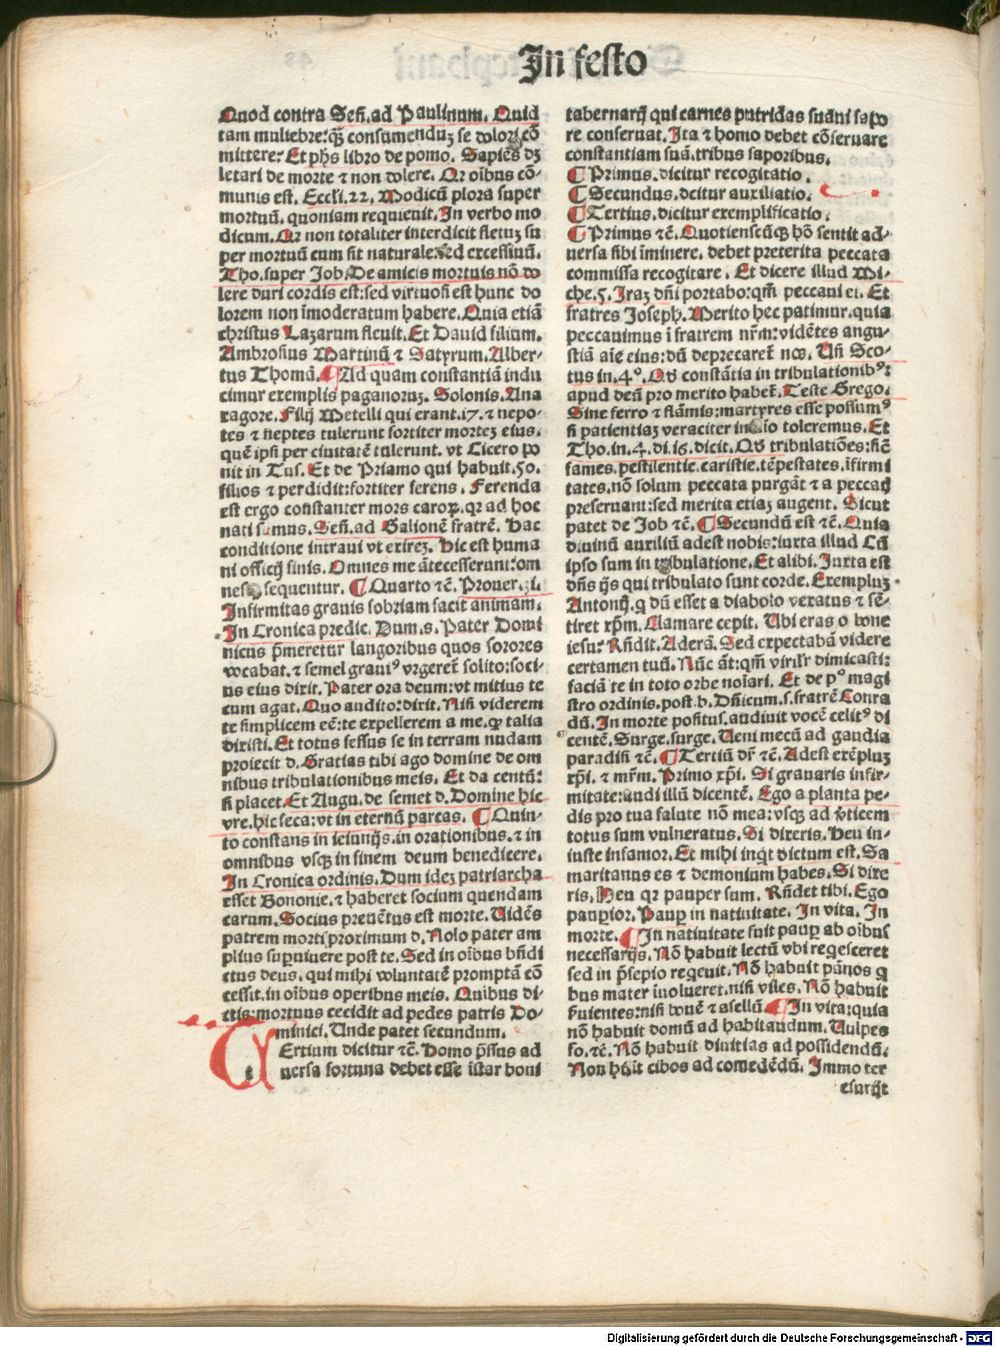 In festo
Quod contra Señ. ad Paulinum. Quid
tam muliebre: qȝ consumenduȝ se dolori cō
mittere: Et phs libro de pomo. Sapiēs dȝ
letari de morte ⁊ non dolere. Qꝛ oībus cō-
munis est. Eccli. 22. Modicū plora super
mortuū, quoniam requieuit. In verbo mo
dicum. Qꝛ non totaliter interdicit fletuȝ su
per mortuū cum sit naturale: sed excessiuū.
Tho. super Job. De amicis mortuis nō do
lere duri cordis est: sed virtuosi est hunc do
lorem non īmoderatum habere. Quia etiā
christus Lazarum fleuit. Et Dauid filium.
Ambrosius Martinū ⁊ Satyrum. Alber-
tus Thomā. ¶ Ad quam constantiā indu
cimur exemplis paganoruȝ. Solonis. Ana
xagore. Filij Metelli qui erant. 17. ⁊ nepo-
tes ⁊ neptes tulerunt fortiter morteȝ eius.
quē ipsi per ciuitatē tulerunt. vt Cicero po
nit in Tus. Et de Priamo qui habuit. 50.
filios ⁊ perdidit: fortiter ferens. Ferenda
est ergo constanter mors caroꝝ. qꝛ ad hoc
nati sumus. Señ. ad Galionē fratrē. Hac
conditione intraui vt exireȝ. Hic est huma
ni officij finis. Omnes me ātecesserunt: om
nes sequentur. ¶ Quarto ⁊c̄. Prouer. 31.
Infirmitas grauis sobriam facit animam.
In Cronica predic. Dum. s. Pater Domi
nicus p̄meretur languoribus quos sorores
vocabat. ⁊ semel graui⁹ vrgeret̄ solito: soci-
us eius dixit. Pater ora deum: vt mitius te
cum agat. Quo audito: dixit. Nisi viderem
te simplicem eē: te expellerem a me. qꝛ talia
dixisti. Et totus fessus se in terram nudam
proiecit d. Gratias tibi ago domine de om
nibus tribulationibus meis. Et da centū:
si placet. Et Augu. de semet d. Domine hic
vre. hic seca: vt in eternū parcas. ¶ Quin-
to constans in ieiunijs. in orationibus. ⁊ in
omnibus vsqȝ in finem deum benedicere.
In Cronica ordinis. Dum ideȝ patriarcha
esset Bononie. ⁊ haberet socium quendam
carum. Socius preuētus est morte. Uidēs
patrem morti proximum d. Nolo pater am
plius supuiuere post te. Sed in oībus bn̄di
ctus deus. qui mihi voluntatē promptā cō
cessit. in oībus operibus meis. Quibus di-
ctis: mortuus cecidit ad pedes patris Do-
minici. Unde patet secundum.
TErtium dicitur ⁊c̄. Homo p̄ssus ad
uersa fortuna debet esse īstar boni
tabernarij qui carnes putridas suāni sapo
re conseruat. Ita ⁊ homo debet cōseruare
constantiam suā. tribus saporibus.
¶ Primus. dicitur recogitatio.
¶ Secundus. dcitur auxiliatio.
¶ Tertius. dicitur exemplificatio.
¶ Primus ⁊c̄. Quotienscūqȝ hō sentit ad-
uersa sibi īminere. debet preterita peccata
commissa recogitare. Et dicere illud Mi-
che. 5. Iraȝ dn̄i portabo: qm̄ peccaui ei. Et
fratres Joseph. Merito hec patimur. quia
peccauimus ī fratrem nr̄m: vidētes angu-
stiā aīe eius: dū deprecaret̄ nos. Un̄ Sco-
tus in. 4°. Qd constātia in tribulationib⁹:
apud deū pro merito habet̄. Teste Grego.
Sine ferro ⁊ flāmis: martyres esse possum⁹
si patientiaȝ veraciter in aīo toleremus. Et
Tho. in. 4. di. 15. dicit. Qd tribulatiōes: sic̄
fames. pestilentie. caristie. tēpestates. īfirmi
tates. nō solum peccata purgāt ⁊ a peccatꝭ
preseruant: sed merita etiaȝ augent. Sicut
patet de Job ⁊c̄. ¶ Secundū est ⁊c̄. Quia
diuinū auxiliū adest nobis: iuxta illud Cū
ipso sum in tribulatione. Et alibi. Juxta est
dn̄s ijs qui tribulato sunt corde. Exempluȝ
Antonij. q dū esset a diabolo vexatus ⁊ sē-
tiret xp̄m. Clamare cepit. Ubi eras o bone
iesu: Rn̄dit. Aderā. Sed expectabā videre
certamen tuū. Nūc āt: qm̄ virilr̄ dimicasti:
faciā te in toto orbe noīari. Et de p° magi
stro ordinis. post. b. Dn̄icum. s. fratrē Conra
dū. In morte positus. audiuit vocē celit⁹ di
centē. Surge. surge. Ueni mecū ad gaudia
paradisi ⁊c̄. ¶ Tertiū dr̄ ⁊c̄. Adest exēpluȝ
xp̄i. ⁊ mr̄m. Primo xp̄i. Si grauaris infir-
mitate: audi illū dicentē. Ego a planta pe-
dis pro tua salute nō mea: vsqȝ ad v̄ticem
totus sum vulneratus. Si dixeris. Heu in-
iuste infamor. Et mihi inqt dictum est. Sa
maritanus es ⁊ demonium habes. Si dixe
ris. Heu qꝛ pauper sum. Rn̄det tibi. Ego
paupior. Paup in natiuitate. In vita. In
morte. ¶ In natiuitate fuit paup ab oībus
necessarijs. Nō habuit lectū vbi regesceret
sed in p̄sepio regeuit. Nō habuit pānos q
bus mater īuolueret. nisi viles. Nō habuit
ſuientes: nisi bouē ⁊ asellū. ¶ In vita: quia
nō habuit domū ad habitandum. Uulpes
fo. ⁊c̄. Nō habuit diuitias ad possidendū.
Non hūit cibos ad comedēdū. Immo ter
esurijt